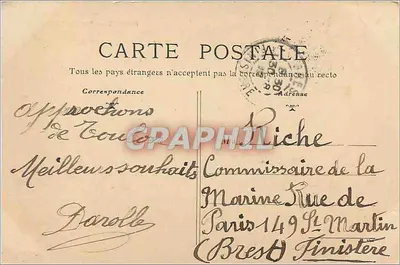 CARTE POSTALE
Tous les pays étrangers n'acceptent pas la correspondance au recto
Correspondance
Adresse
approchons
de Toulon
Meilleurs souhaits
Darolle
CPAPHIL
Riche
Commissaire de la
Marine Rue de
Paris 149 St Martin
(Brest) Finistère